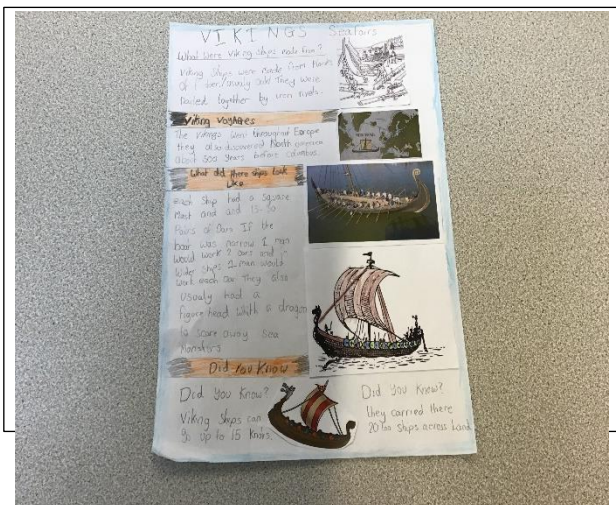 VIKINGS Seafairs
What were Viking ships made from?
Viking ships were made from
of timber, mainly oak. They were
nailed together by iron rivets.
Viking Voyages
The vikings went throughout Europe
they also discovered North america
about 500 years before columbus.
What did there ships look
Like
Each ship had a square
Mast and and 15-30
Pairs of Oars If the
boat was narrow 1 man
would work 2 oars and in
Wide ships 1 man would
work each oar They also
Usually had a
figure head with a dragon
to scare away sea
Monsters
Did You Know
Did You Know?
Viking Ships can
go up to 15 Knots.
Did You Know?
they carried there
ships across land